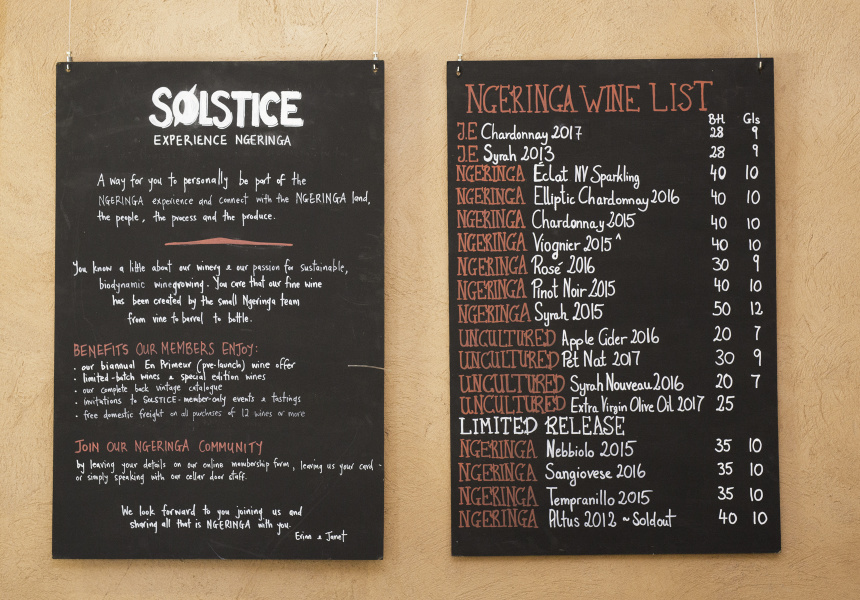 SOLSTICE
EXPERIENCE NGERINGA
A way for you to personally be part of the
NGERINGA experience and connect with the NGERINGA land,
the people, the process and the produce.
You know a little about our winery & our passion for sustainable,
biodynamic winegrowing. You care that our fine wine
has been created by the small Ngeringa team
from vine to barrel to bottle.
BENEFITS OUR MEMBERS ENJOY:
· our biannual En Primeur (pre-launch) wine offer
· limited-batch wines & special edition wines
· our complete back vintage catalogue
· invitations to SOLSTICE-member-only events & tastings
· free domestic freight on all purchases of 12 wines or more
JOIN OUR NGERINGA COMMUNITY
by leaving your details on our online membership form, leaving us your card -
or simply speaking with our cellar door staff.
We look forward to you joining us and
sharing all that is NGERINGA with you.
Erinn & Janet
NGERINGA WINE LIST
Btl Gls
J.E Chardonnay 2017 28 9
J.E Syrah 2013 28 9
NGERINGA Éclat NV Sparkling 40 10
NGERINGA Elliptic Chardonnay 2016 40 10
NGERINGA Chardonnay 2015 40 10
NGERINGA Viognier 2015 ^ 40 10
NGERINGA Rosé 2016 30 9
NGERINGA Pinot Noir 2015 40 10
NGERINGA Syrah 2015 50 12
UNCULTURED Apple Cider 2016 20 7
UNCULTURED Pet Nat 2017 30 9
UNCULTURED Syrah Nouveau 2016 20 7
UNCULTURED Extra Virgin Olive Oil 2017 25
LIMITED RELEASE
NGERINGA Nebbiolo 2015 35 10
NGERINGA Sangiovese 2016 35 10
NGERINGA Tempranillo 2015 35 10
NGERINGA Altus 2012 ~ Soldout 40 10